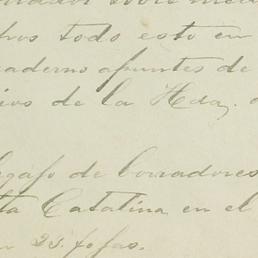 todo esto en
cuaderno apuntes de
de la Hda.
legajo de borradores
ta Catalina en el
23. fojas.